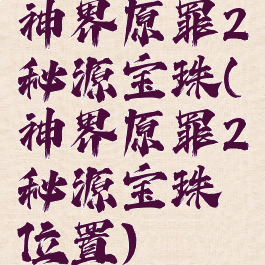 神界原罪2
秘源宝珠(
神界原罪2
秘源宝珠
位置)